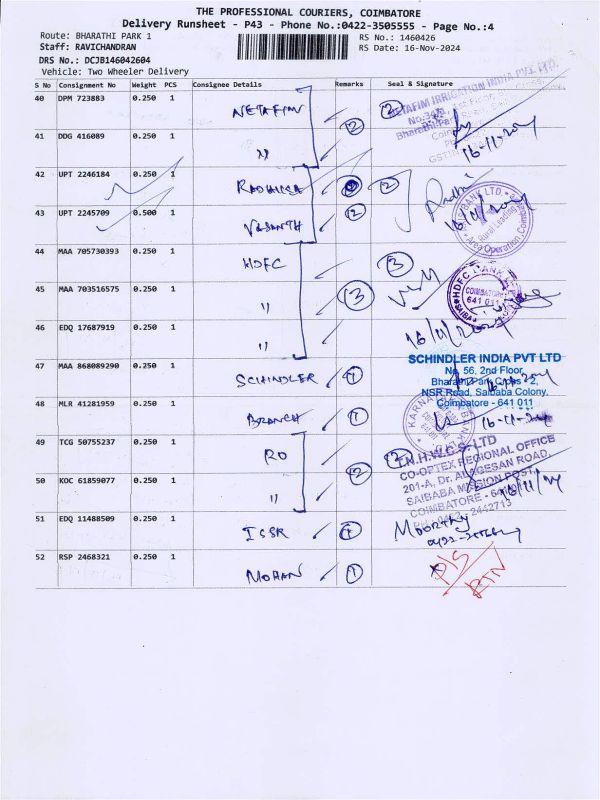 THE PROFESSIONAL COURIERS, COIMBATORE
Delivery Runsheet - P43 - Phone No.:0422-3505555 - Page No.:4
Route: BHARATHI PARK 1 RS No.: 1460426
Staff: RAVICHANDRAN RS Date: 16-Nov-2024
DRS No.: DCJB146042604
Vehicle: Two Wheeler Delivery
S No Consignment No Weight PCS Consignee Details Remarks Seal & Signature
40 DPM 723883 0.250 1 NETAFIM 2
41 DDG 416089 0.250 1 " 2 16-11-
42 UPT 2246184 0.250 1 RADHIKA 2
43 UPT 2245709 0.500 1 VASANTH 2
44 MAA 705730393 0.250 1 HDFC 3
45 MAA 703516575 0.250 1 " 3
HDFC BANK
COIMBATORE
641 011
46 EDQ 17687919 0.250 1 "
SCHINDLER INDIA PVT LTD
No. 56, 2nd Floor,
47 MAA 868089290 0.250 1 SCHINDLER 1
NSR Road, Saibaba Colony,
Coimbatore - 641 011
48 MLR 41281959 0.250 1 BRANCH 1
49 TCG 50755237 0.250 1 RO 2
T.N.H.W.C.S. LTD
CO-OPTEX REGIONAL OFFICE
201-A, Dr. ALAGESAN ROAD,
SAIBABA MISSION POST,
COIMBATORE -
50 KOC 61859077 0.250 1 " 2
2442713
51 EDQ 11488509 0.250 1 ISSR 1 Moorthy
52 RSP 2468321 0.250 1 MOHAN 1
D/S
RTN